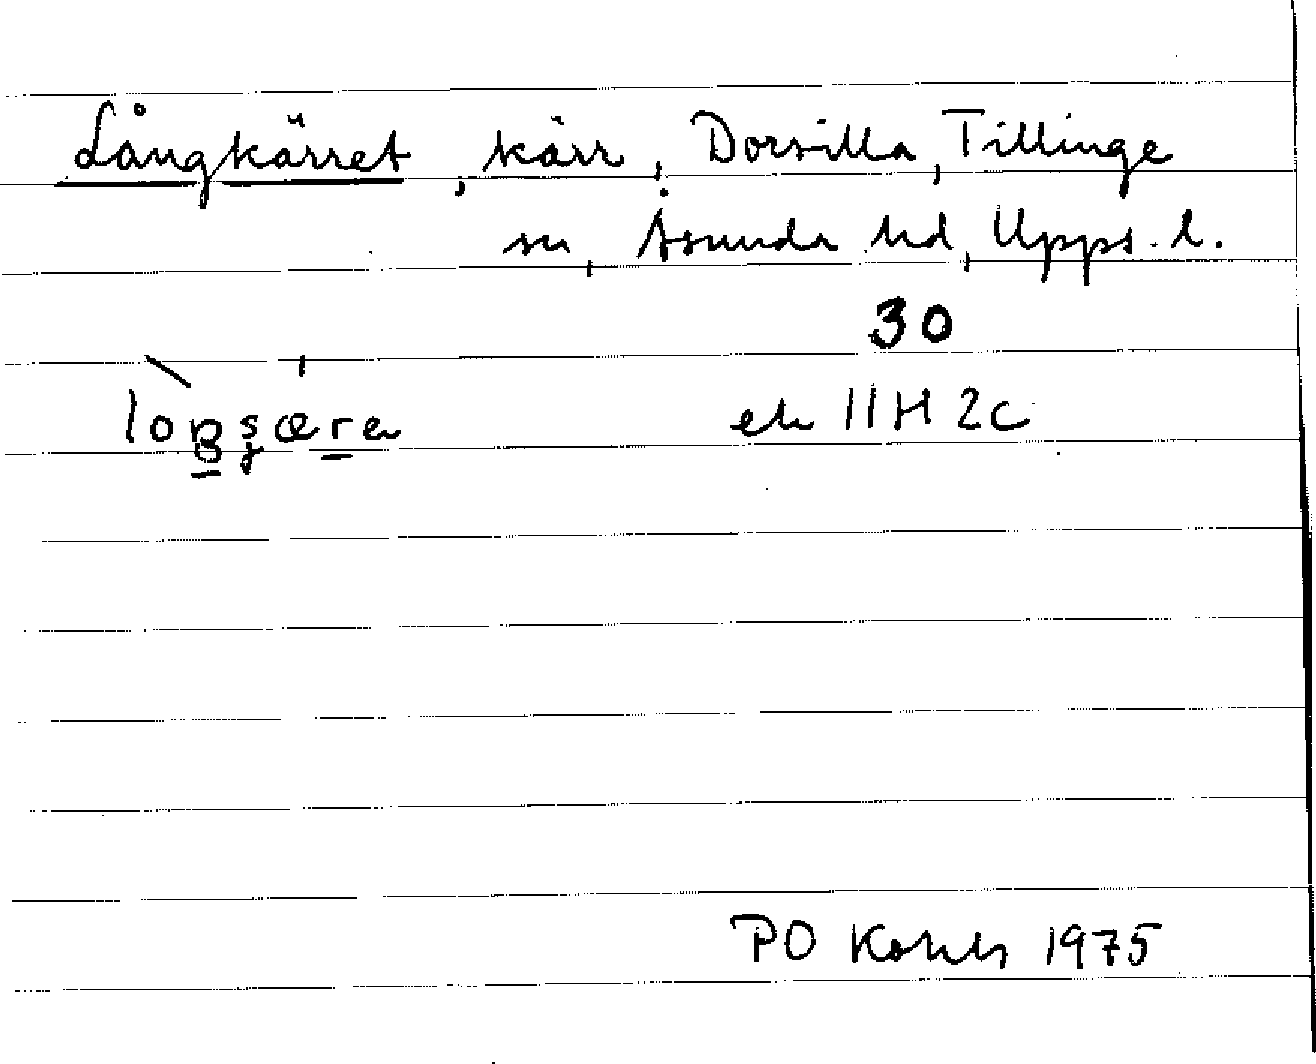 Långkärret, kärr, Dorsilla, Tillinge
sn, Åsunda hd, Upps. l.
30
ek 11H 2c
PO 1975